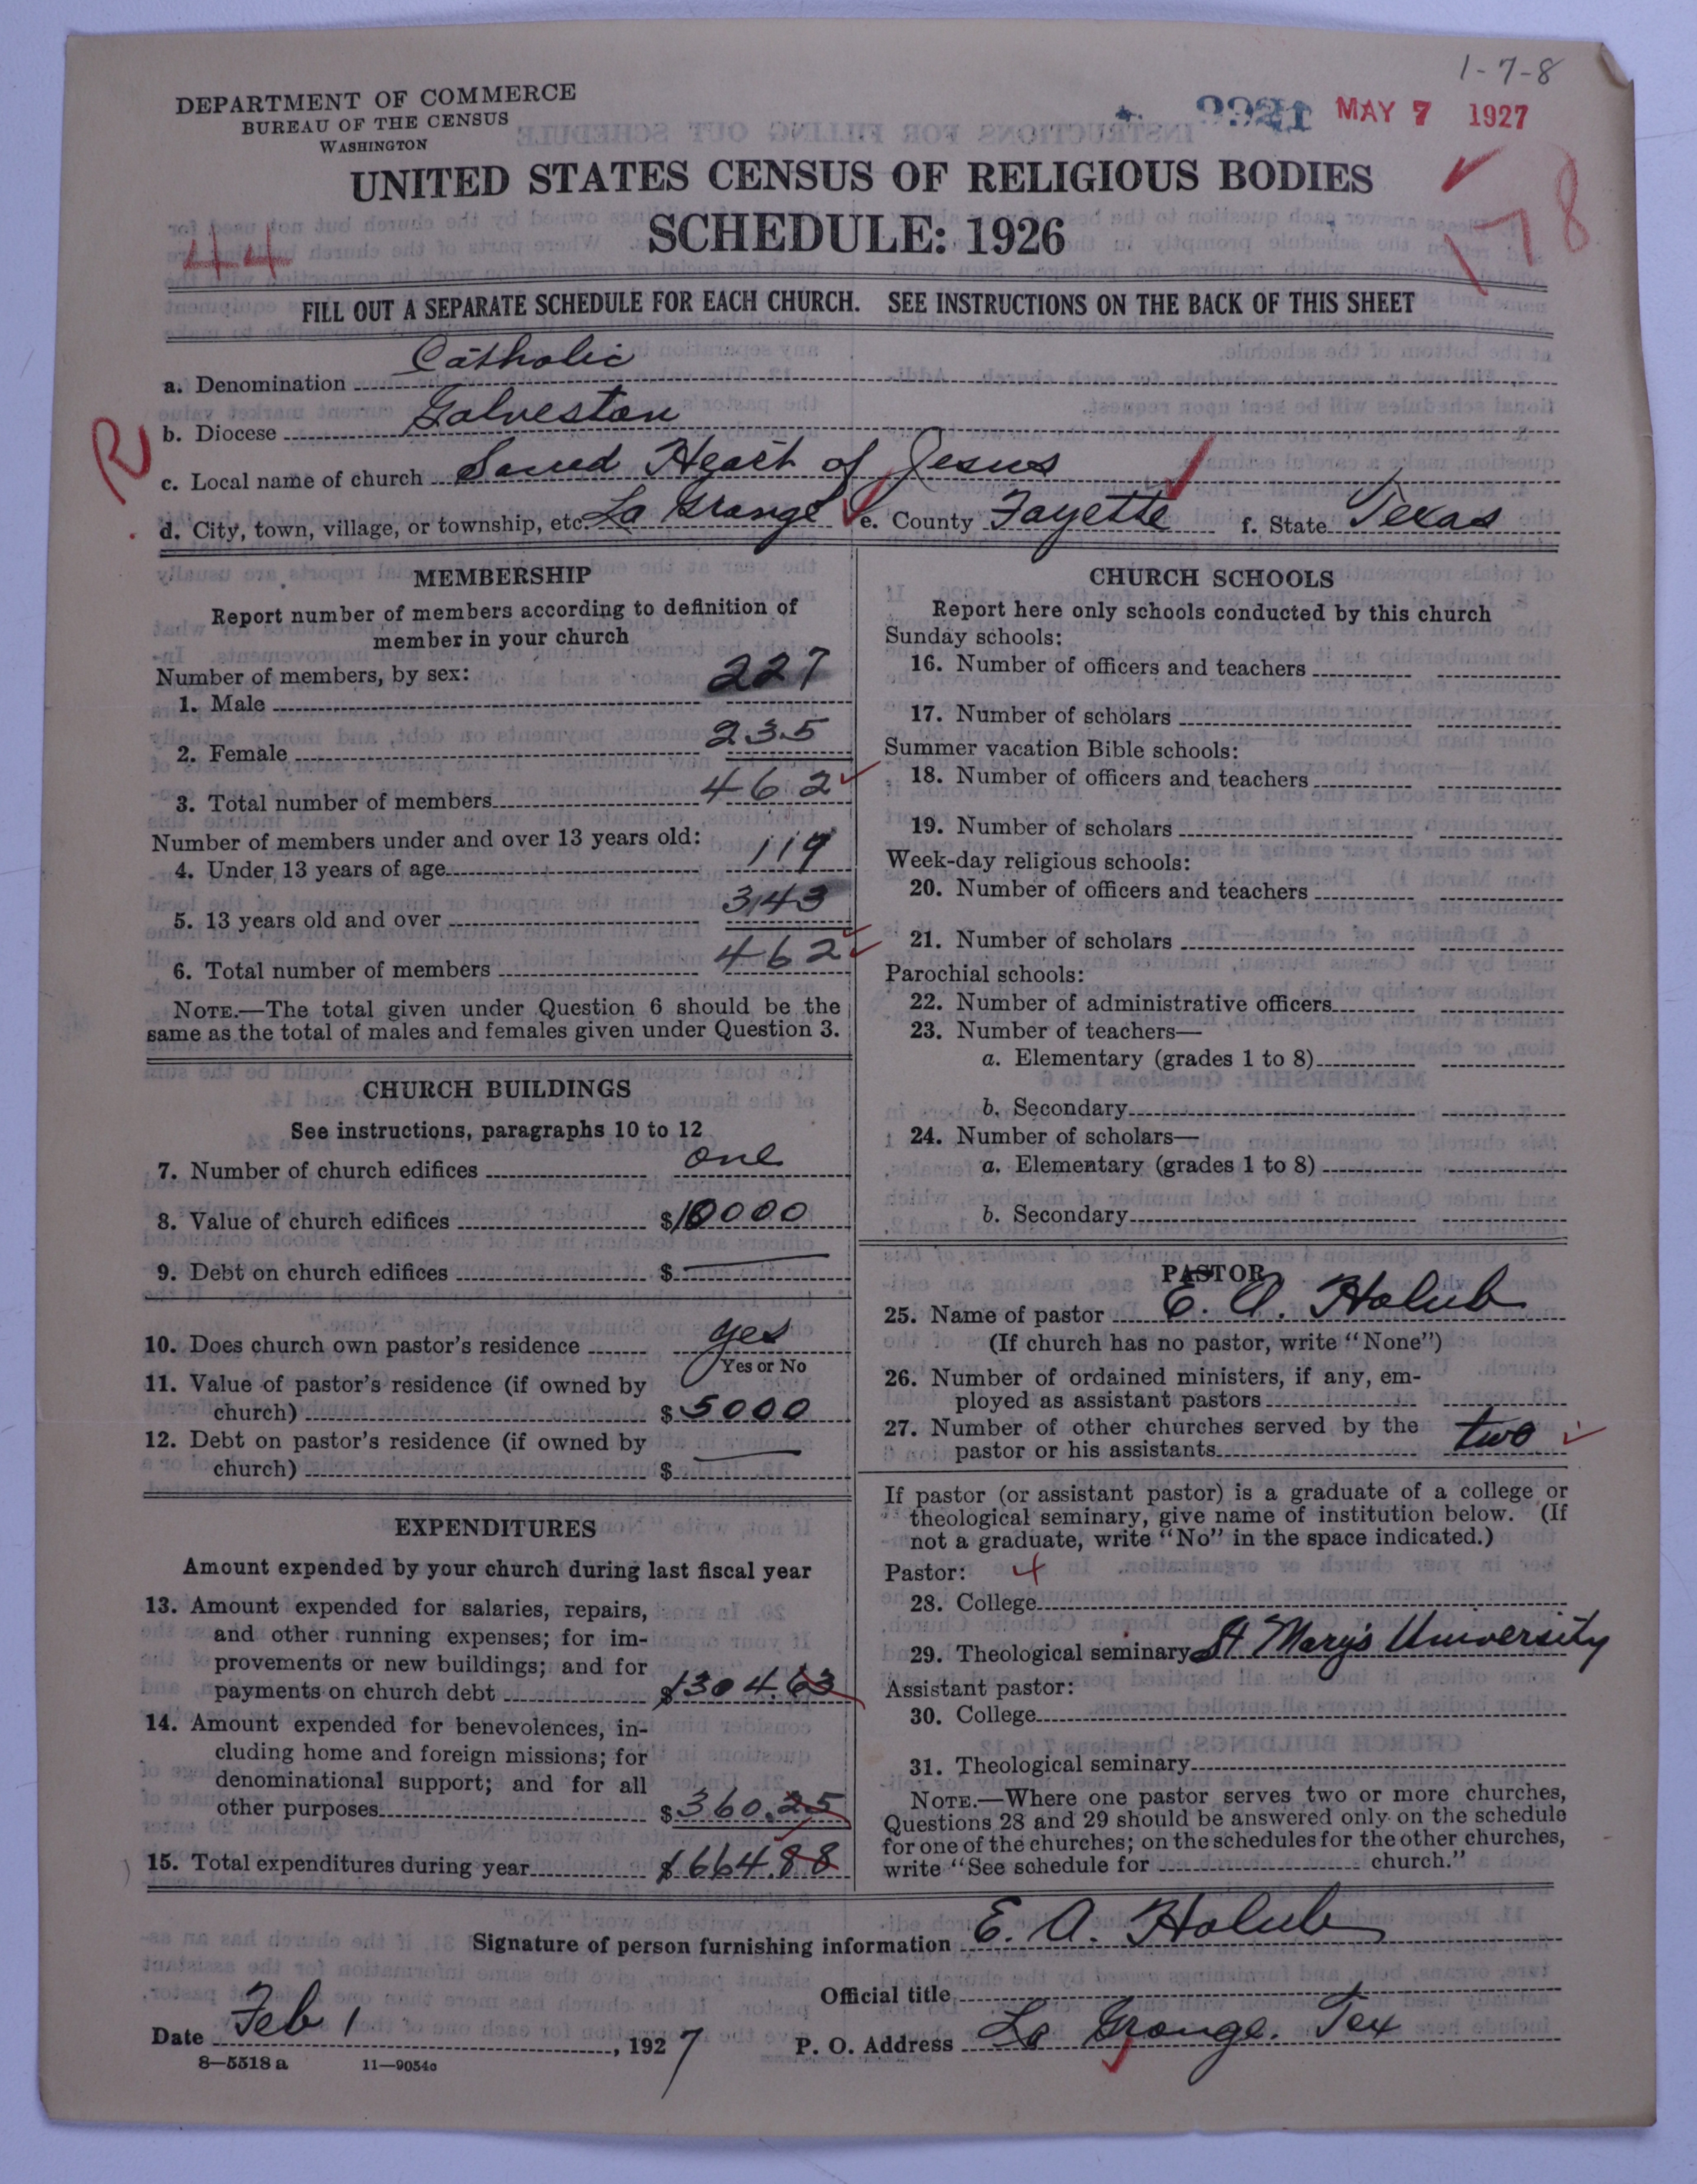 1-7-8
DEPARTMENT OF COMMERCE
BUREAU OF THE CENSUS
WASHINGTON
MAY 7 1927
UNITED STATES CENSUS OF RELIGIOUS BODIES
SCHEDULE: 1926
44
178
FILL OUT A SEPARATE SCHEDULE FOR EACH CHURCH. SEE INSTRUCTIONS ON THE BACK OF THIS SHEET
a. Denomination Catholic
b. Diocese Galveston
R
c. Local name of church Sacred Heart of Jesus
d. City, town, village, or township, etc. La Grange e. County Fayette f. State Texas
MEMBERSHIP
Report number of members according to definition of
member in your church
Number of members, by sex:
1. Male 227
2. Female 235
3. Total number of members 462
Number of members under and over 13 years old:
4. Under 13 years of age 119
5. 13 years old and over 343
6. Total number of members 462
NOTE.—The total given under Question 6 should be the
same as the total of males and females given under Question 3.
CHURCH BUILDINGS
See instructions, paragraphs 10 to 12
7. Number of church edifices one
8. Value of church edifices $10000
9. Debt on church edifices $ —
10. Does church own pastor's residence yes
Yes or No
11. Value of pastor's residence (if owned by
church) $5000
12. Debt on pastor's residence (if owned by
church) $ —
EXPENDITURES
Amount expended by your church during last fiscal year
13. Amount expended for salaries, repairs,
and other running expenses; for im-
provements or new buildings; and for
payments on church debt $1304.63
14. Amount expended for benevolences, in-
cluding home and foreign missions; for
denominational support; and for all
other purposes $360.25
15. Total expenditures during year $1664.88
CHURCH SCHOOLS
Report here only schools conducted by this church
Sunday schools:
16. Number of officers and teachers
17. Number of scholars
Summer vacation Bible schools:
18. Number of officers and teachers
19. Number of scholars
Week-day religious schools:
20. Number of officers and teachers
21. Number of scholars
Parochial schools:
22. Number of administrative officers
23. Number of teachers—
a. Elementary (grades 1 to 8)
b. Secondary
24. Number of scholars—
a. Elementary (grades 1 to 8)
b. Secondary
PASTOR
25. Name of pastor E. A. Holub
(If church has no pastor, write "None")
26. Number of ordained ministers, if any, em-
ployed as assistant pastors
27. Number of other churches served by the
pastor or his assistants two
If pastor (or assistant pastor) is a graduate of a college or
theological seminary, give name of institution below. (If
not a graduate, write "No" in the space indicated.)
Pastor: 4
28. College
29. Theological seminary St Mary's University
Assistant pastor:
30. College
31. Theological seminary
NOTE.—Where one pastor serves two or more churches,
Questions 28 and 29 should be answered only on the schedule
for one of the churches; on the schedules for the other churches,
write "See schedule for church."
Signature of person furnishing information E. A. Holub
Official title
Date Feb 1, 1927 P. O. Address La Grange. Tex
8—5518 a 11—9054c